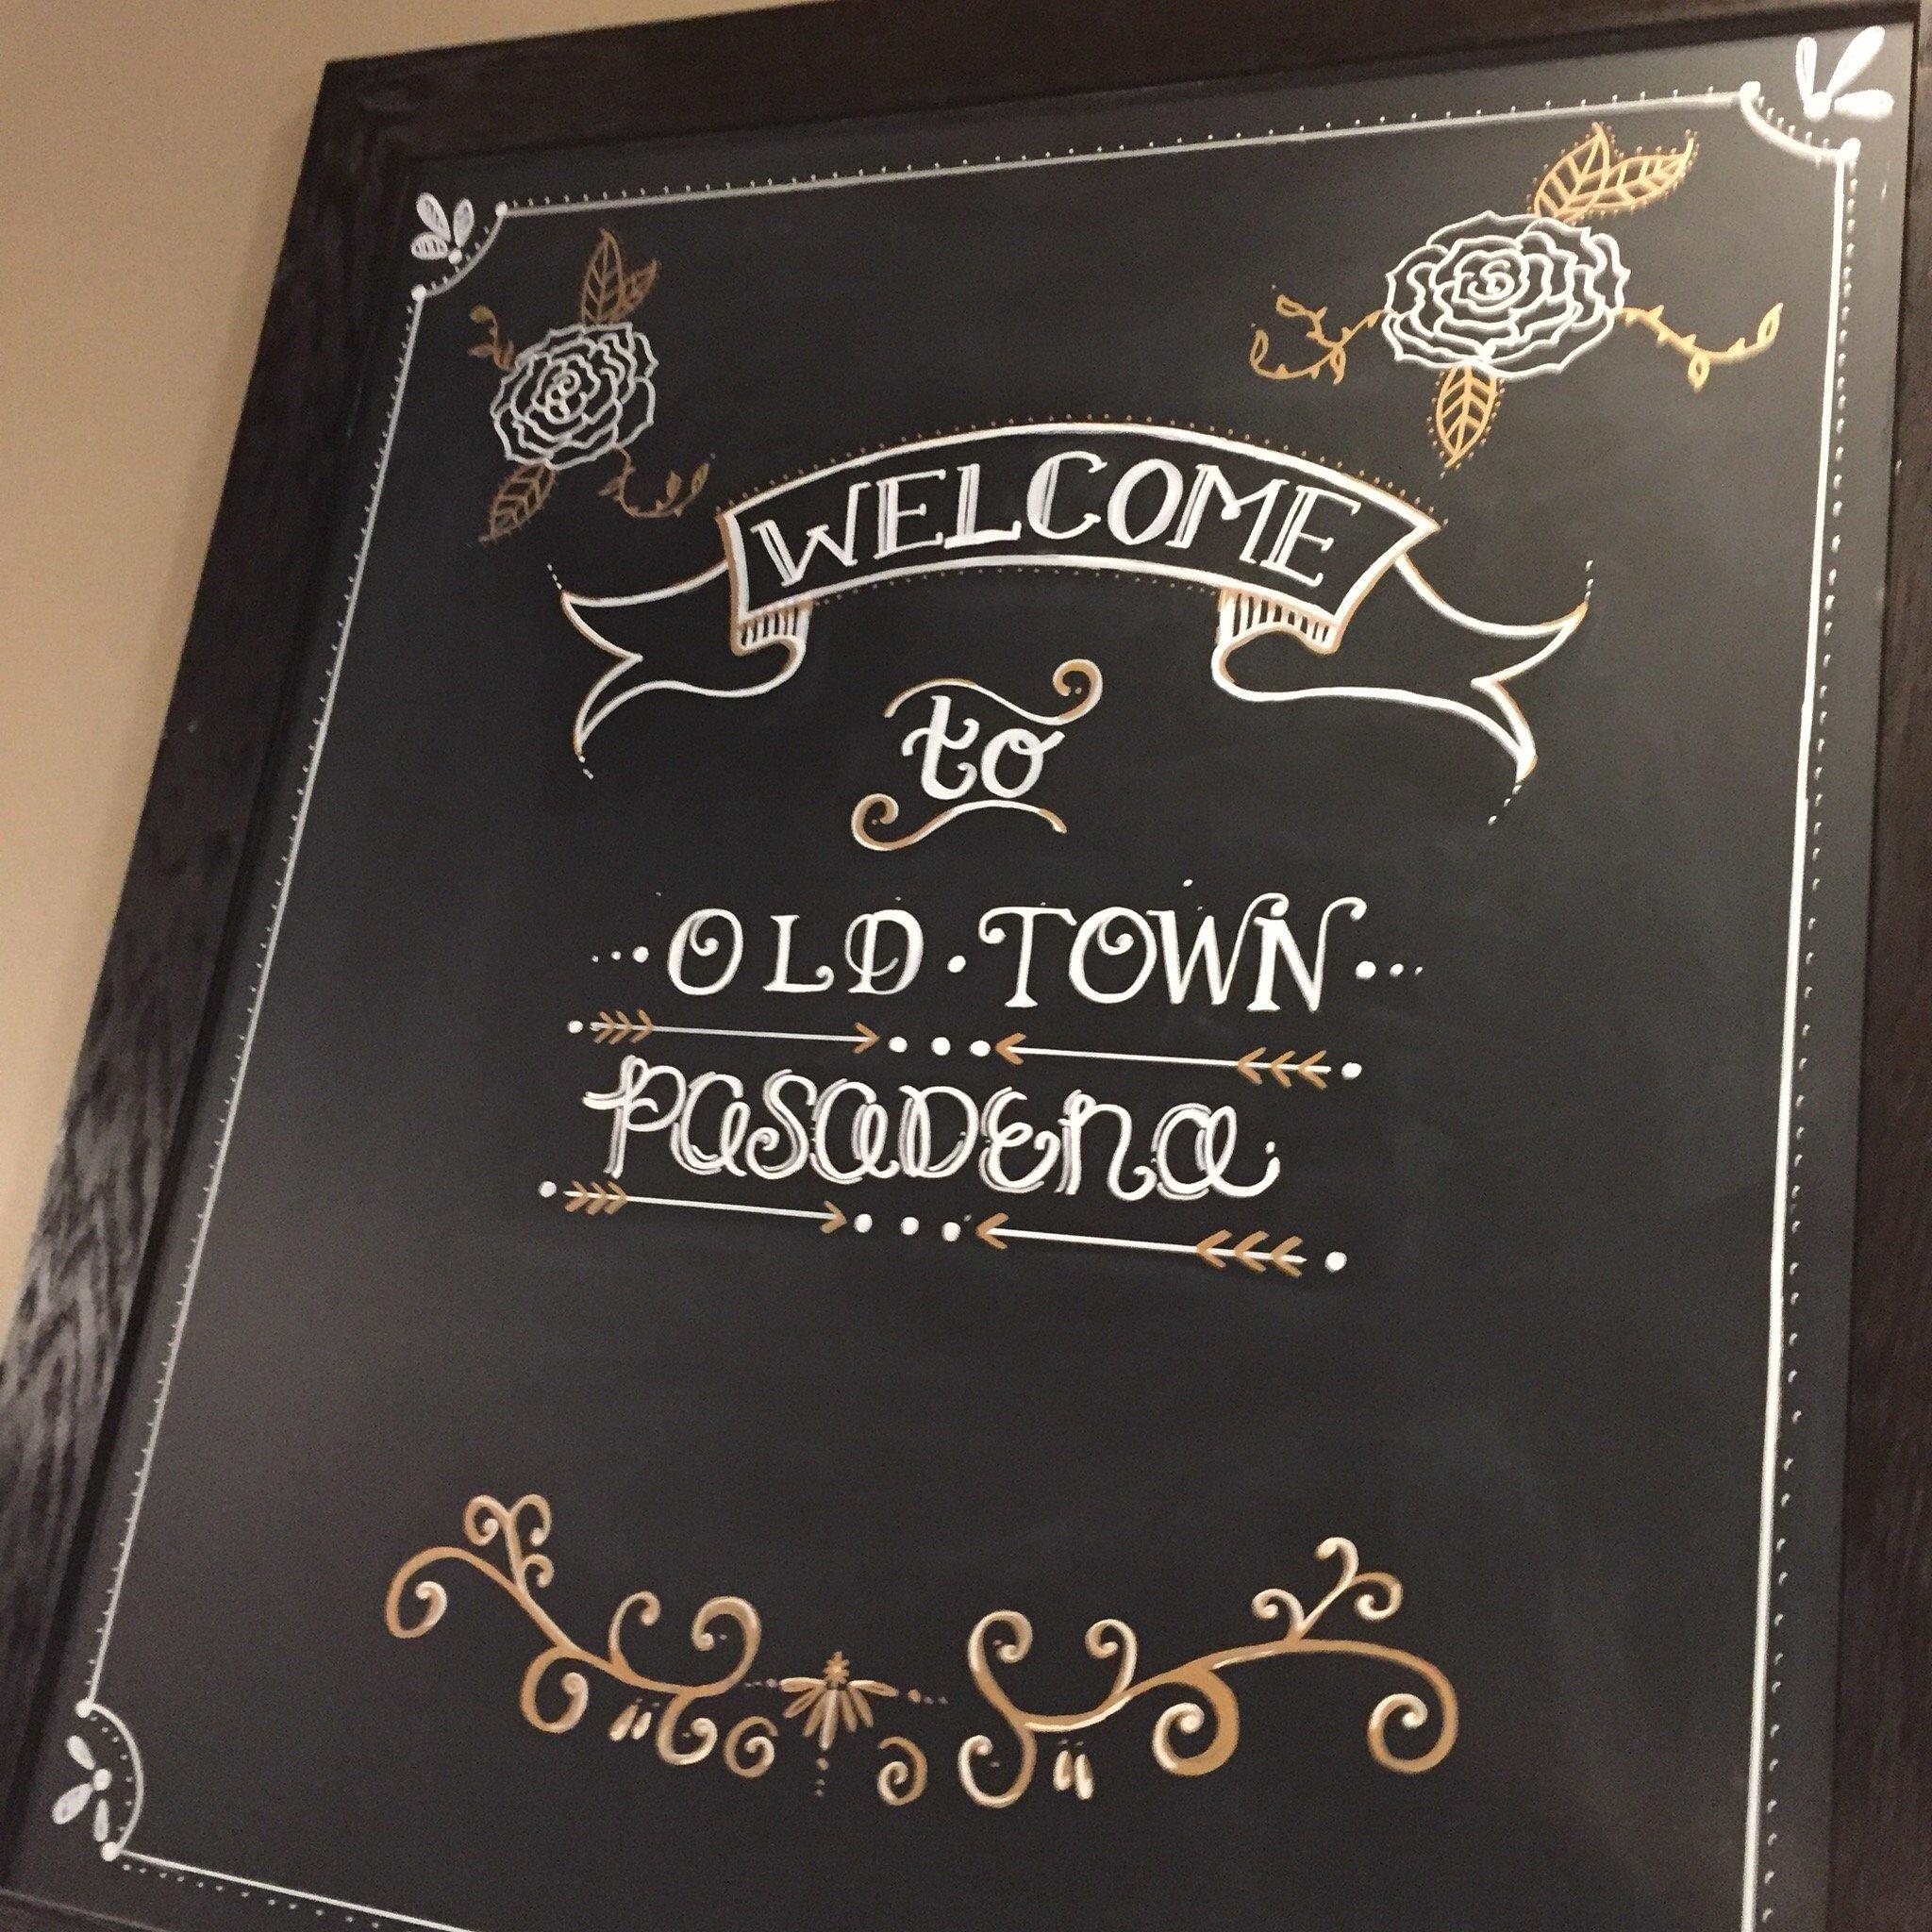 WELCOME
to
OLD · TOWN
PASADENA